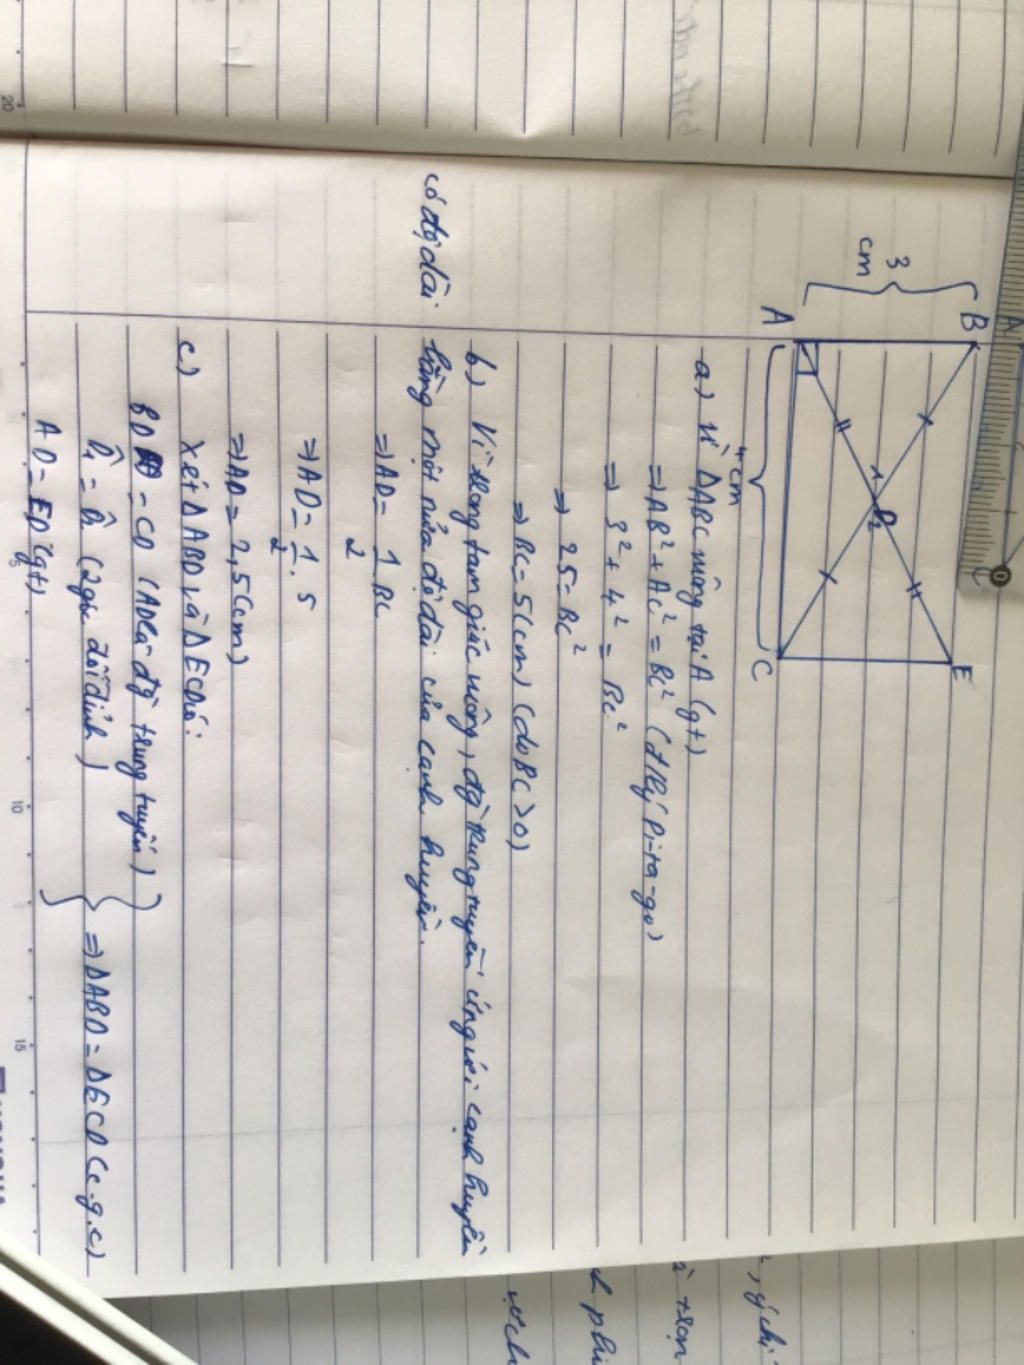 B
E
3
cm
1
D
2
A
C
4cm
a) Vì ΔABC vuông tại A (gt)
⇒ AB² + AC² = BC² (đlký Pi-ta-go)
⇒ 3² + 4² = BC²
⇒ 25 = BC²
⇒ BC = 5(cm) (do BC > 0)
b) Vì trong tam giác vuông, đg trung tuyến ứng với cạnh huyền
có độ dài bằng một nửa độ dài của cạnh huyền.
⇒ AD = 1/2 BC
⇒ AD = 1/2 . 5
⇒ AD = 2,5(cm)
c) Xét ΔABD và ΔECD có:
BD = CD (AD là đg trung tuyến)
D̂₁ = D̂₂ (2 góc đối đỉnh)
AD = ED (gt)
⇒ ΔABD = ΔECD (c.g.c)
A
0
20
5
10
15